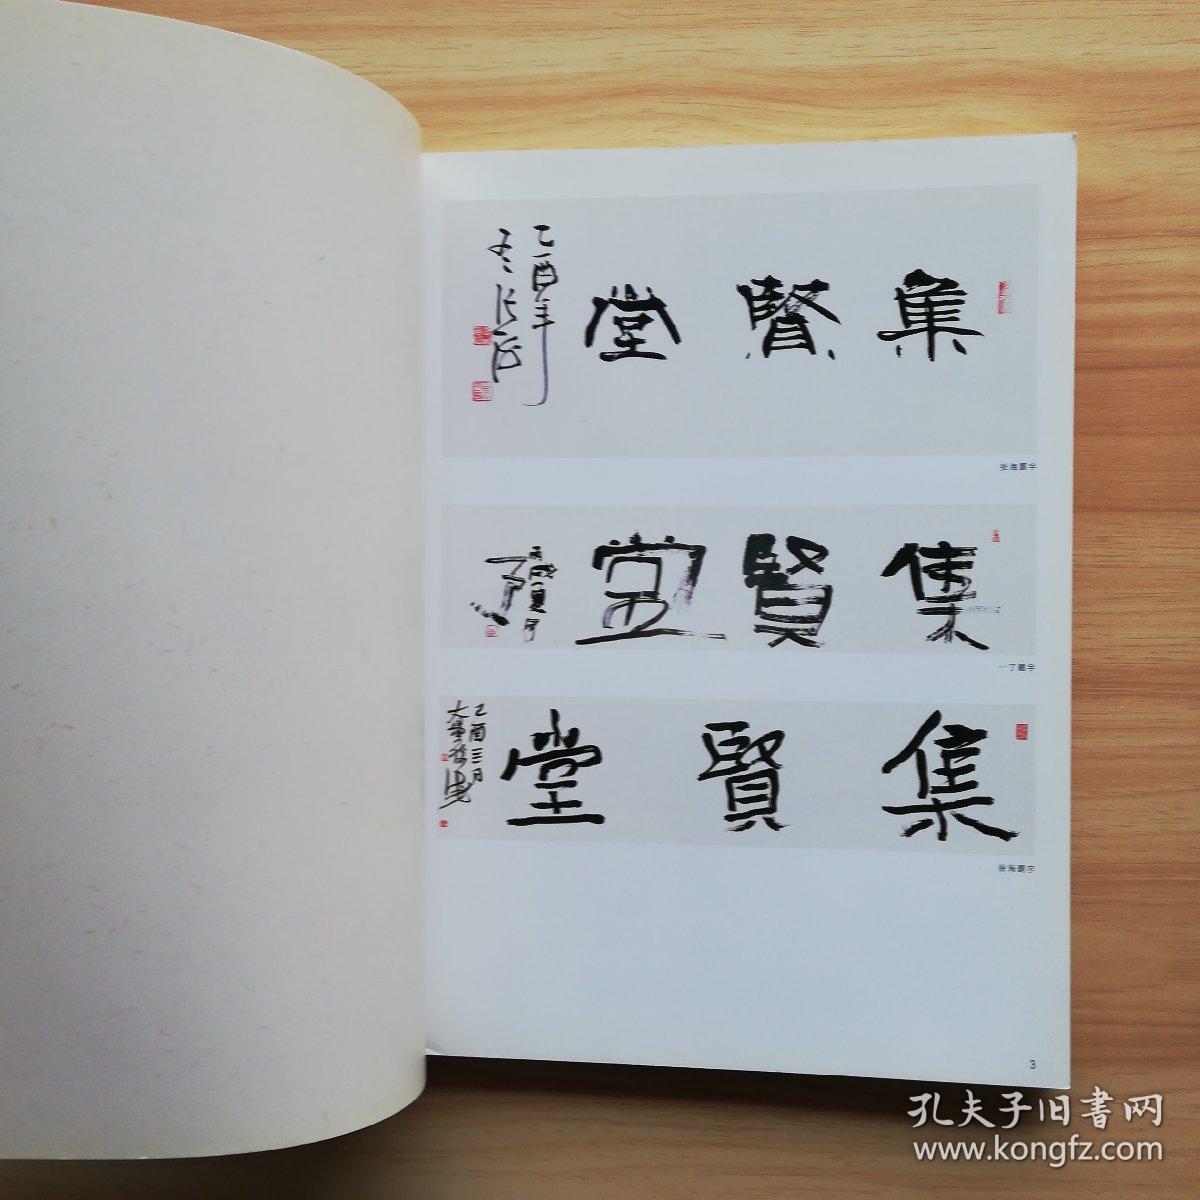 集賢堂
乙酉年
張海題字
集賢堂
一了題字
集賢堂
乙酉三月
張海題字
3
孔夫子旧書网
www.kongfz.com